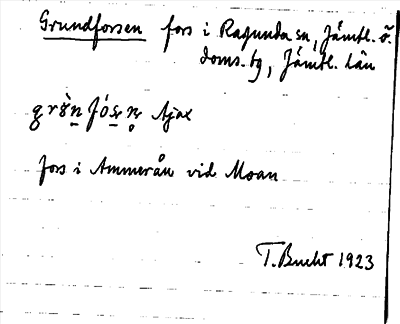 Grundforsen fors i Ragunda sn, Jämtl. ö.
doms. tg, Jämtl. län
Ajax
fors i Ammerån vid Moan
T. Bucht 1923